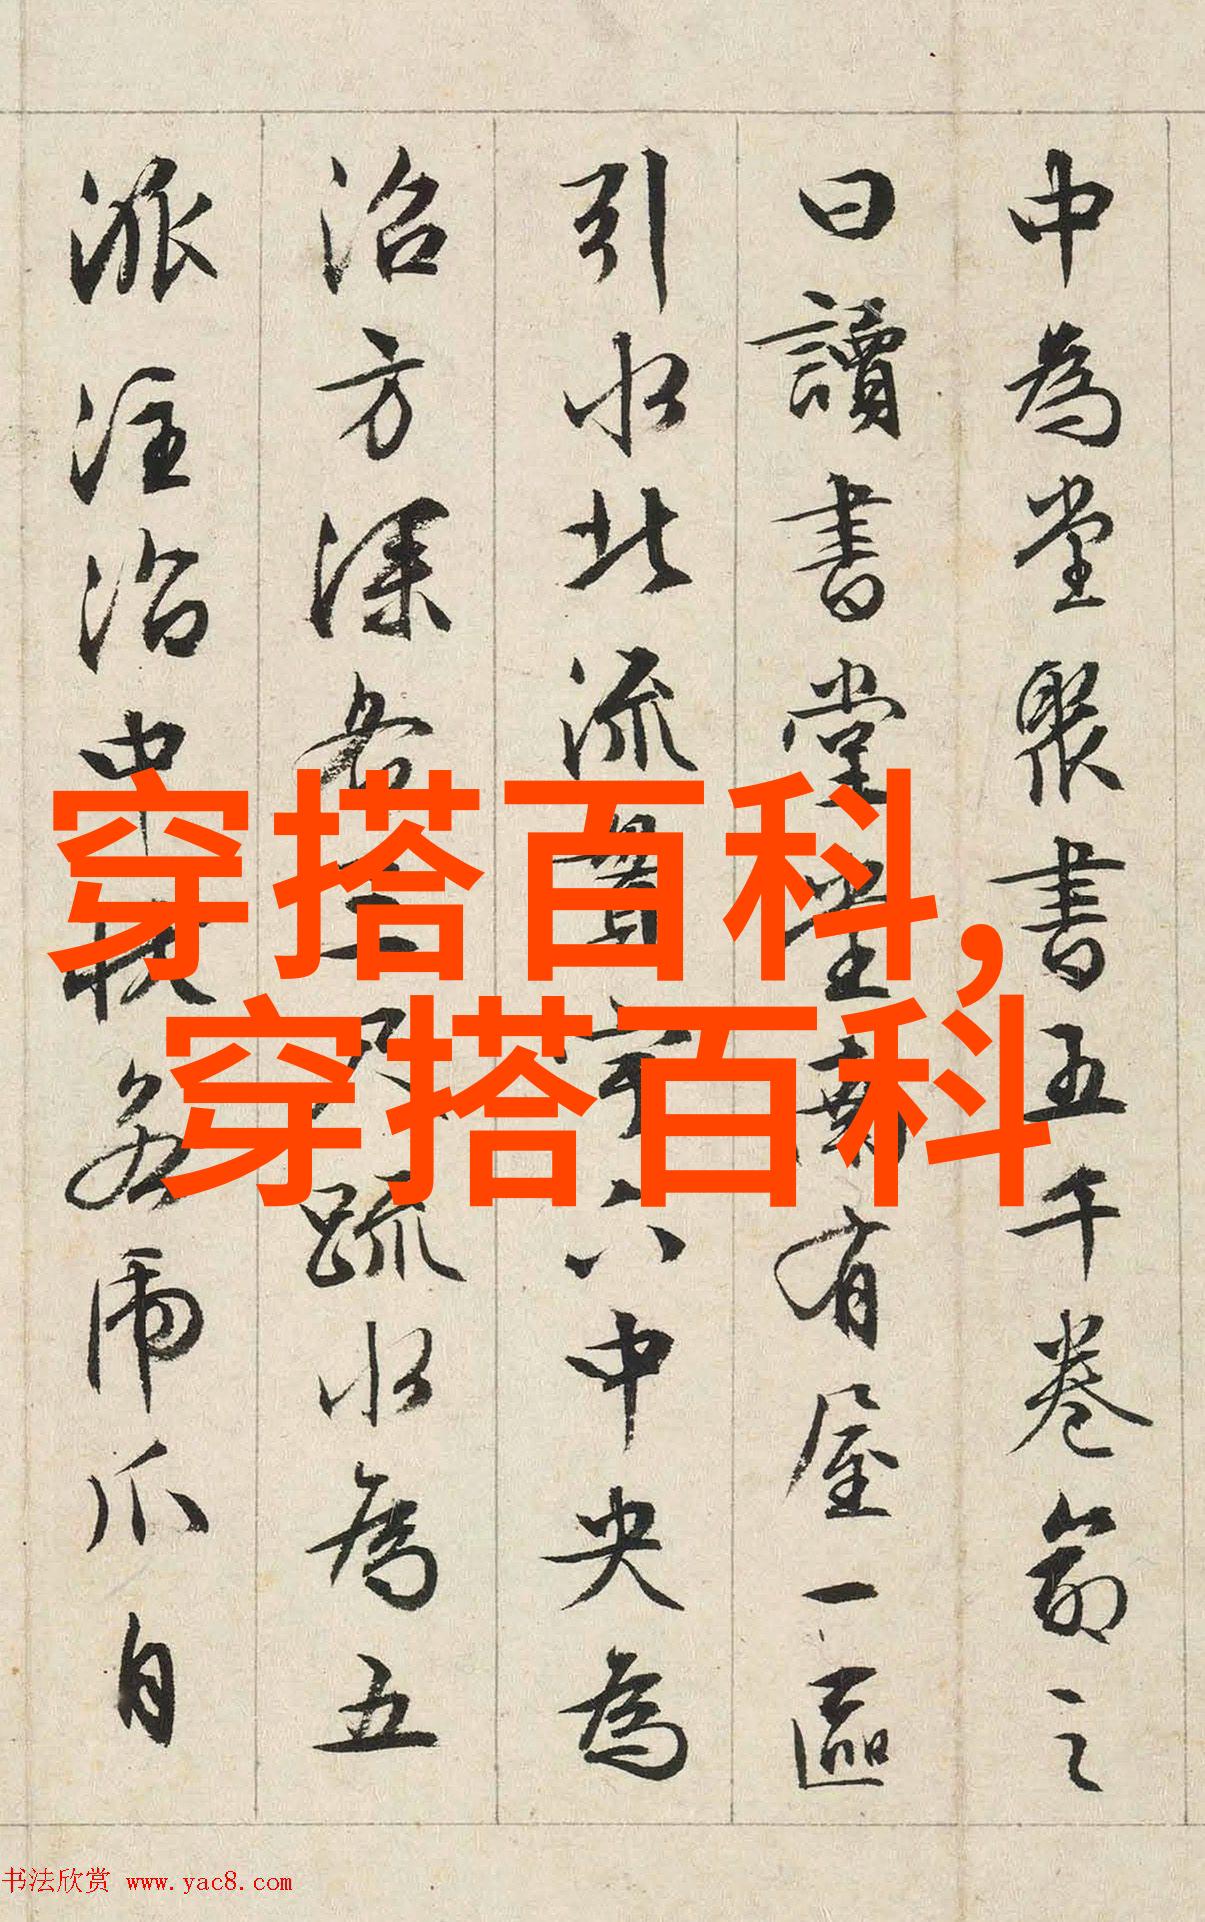 中為堂聚書五千卷命之
曰讀書堂堂南有屋一區
引水北流貫宇下中央為
沼方深各三尺疏水為五
派注沼中狀若虎爪自
穿搭百科,
穿搭百科
书法欣赏 www.yac8.com